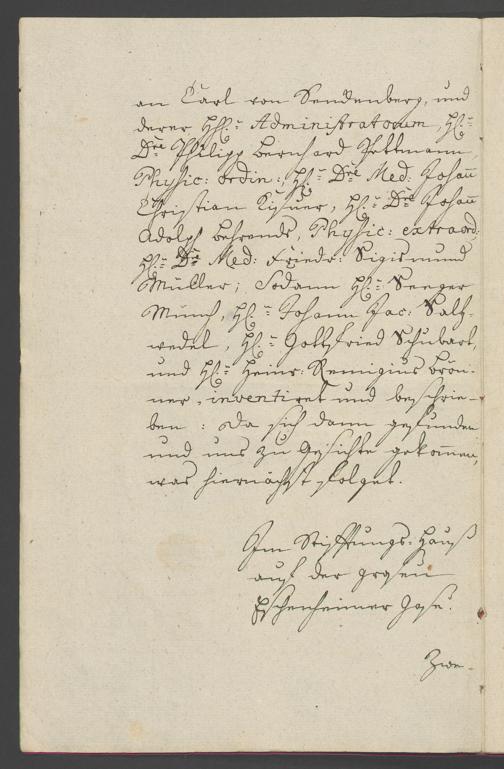 an Carl von Sendenberg, und
derer HH:n Administratorum, H:n
Dre Philipp Bernhard Pettmann
Physic: ordin:, H:n Dre Med: Johann
Christian Kißner, H:n Dre Johann
Adolph Behrends, Physic: extraord:
H:n Dre Med: Friedr: Sigismund
Müller; Sodann H:n Seeger
Münch, H:n Johann Jac: Saltz-
wedel, H:n Gottfried Schubart,
und H:n Heinr: Remigius Brön-
ner, inventiret und beschrie-
ben: da sich dann gefunden
und uns zu Gesichte gekommen,
was hiernächst folget.
Im Stifftungs-Hauß
auf der grosen
Eschenheimer Gaß.
Zwe-